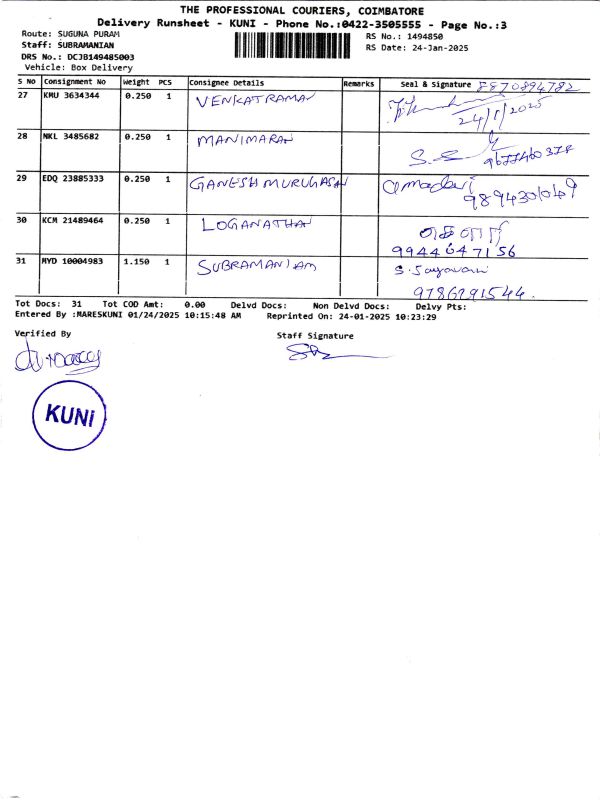 THE PROFESSIONAL COURIERS, COIMBATORE
Delivery Runsheet - KUNI - Phone No.:0422-3505555 - Page No.:3
Route: SUGUNA PURAM
RS No.: 1494850
Staff: SUBRAMANIAN
RS Date: 24-Jan-2025
DRS No.: DCJB149485003
Vehicle: Box Delivery
S No Consignment No Weight PCS Consignee Details Remarks Seal & Signature 8870894782
27 KMU 3634344 0.250 1 VENKATRAMAN
24/1/2025
28 NKL 3485682 0.250 1 MANIMARAN
29 EDQ 23885333 0.250 1 GANESH MURUGASAN
9894301049
30 KCM 21489464 0.250 1 LOGANATHAN
9944647156
31 MYD 10004983 1.150 1 SUBRAMANIAM
9786291544.
Tot Docs: 31 Tot COD Amt: 0.00 Delvd Docs: Non Delvd Docs: Delvy Pts:
Entered By :MARESKUNI 01/24/2025 10:15:48 AM Reprinted On: 24-01-2025 10:23:29
Verified By Staff Signature
KUNI